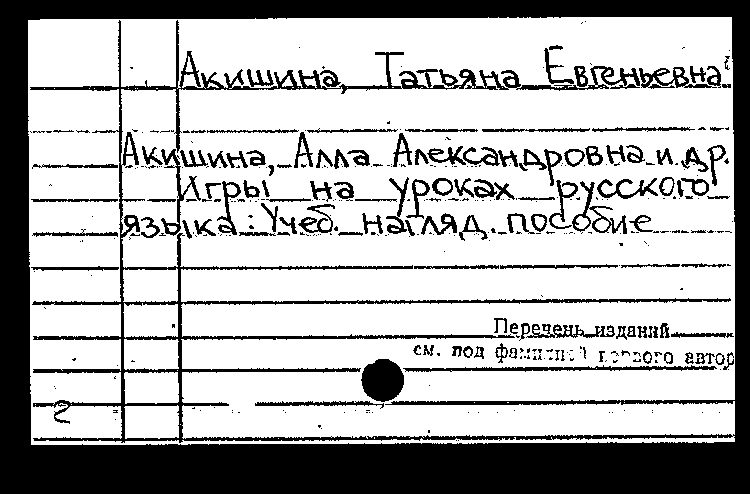 Акишина, Татьяна Евгеньевна
Акишина, Алла Александровна и др.
Игры на уроках русского
языка: Учеб. нагляд. пособие
Перечень изданий
см. под фамилией первого автор
2